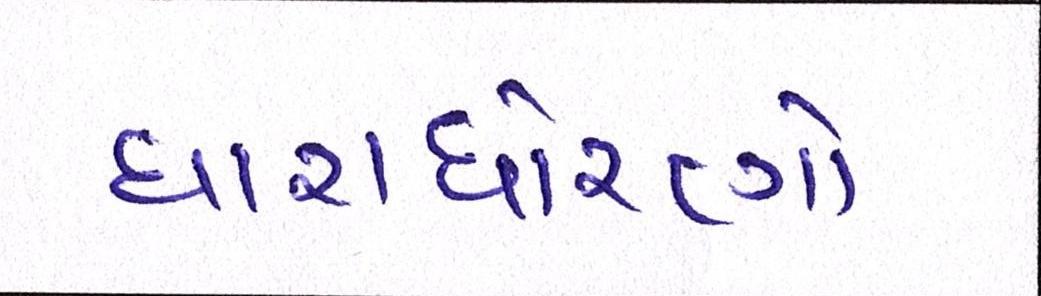 ધારાધોરણો